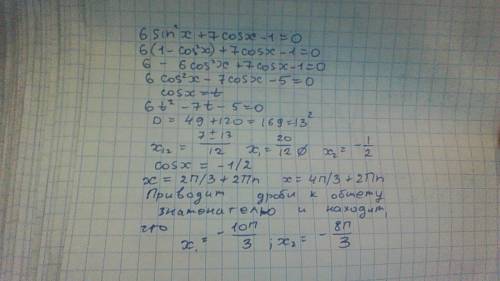 6 sin²x + 7 cosx - 1 = 0
6(1 - cos²x) + 7cosx - 1 = 0
6 - 6cos²x + 7cosx - 1 = 0
6 cos²x - 7cosx - 5 = 0
cosx = t
6t² - 7t - 5 = 0
D = 49 + 120 = 169 = 13²
x₁₂ = (7 ± 13)/12 x₁ = 20/12 ∅ x₂ = -1/2
cosx = -1/2
x = 2П/3 + 2Пn x = 4П/3 + 2Пn
Приводит дроби к общему
знаменателю и находит,
что
x₁ = -10П/3 ; x₂ = -8П/3